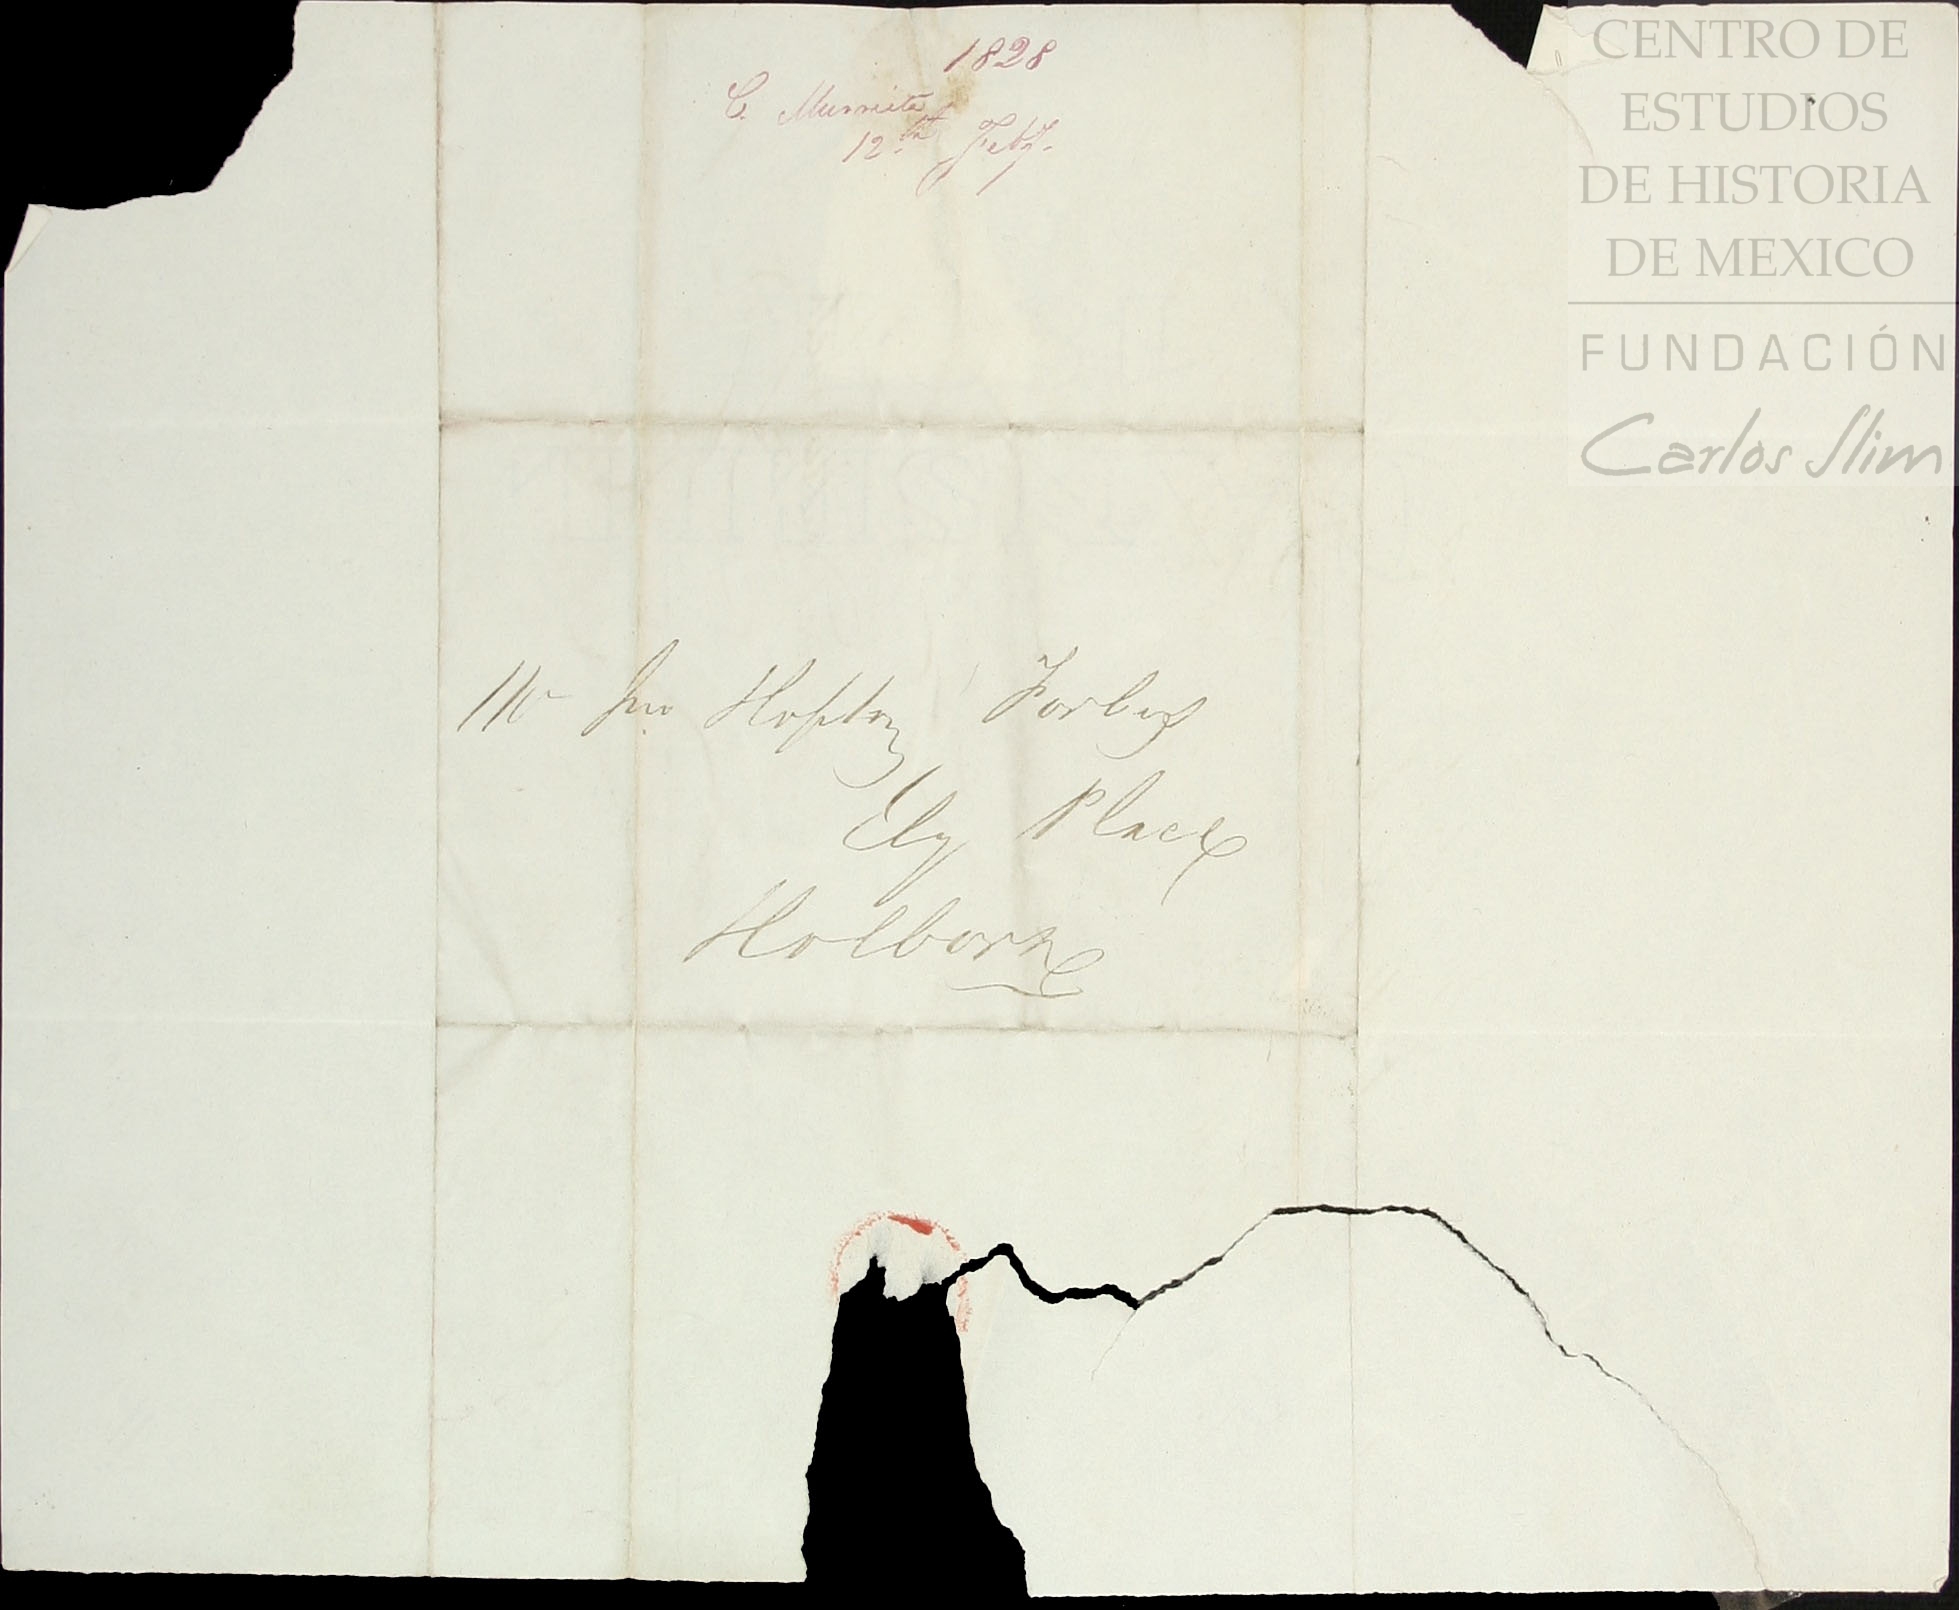 1828
C. Murrieta
12.th Feby.
CENTRO DE
ESTUDIOS
DE HISTORIA
DE MEXICO
FUNDACIÓN
Carlos Slim
Mr Jno Hopton Forbes
Ely Place
Holborn